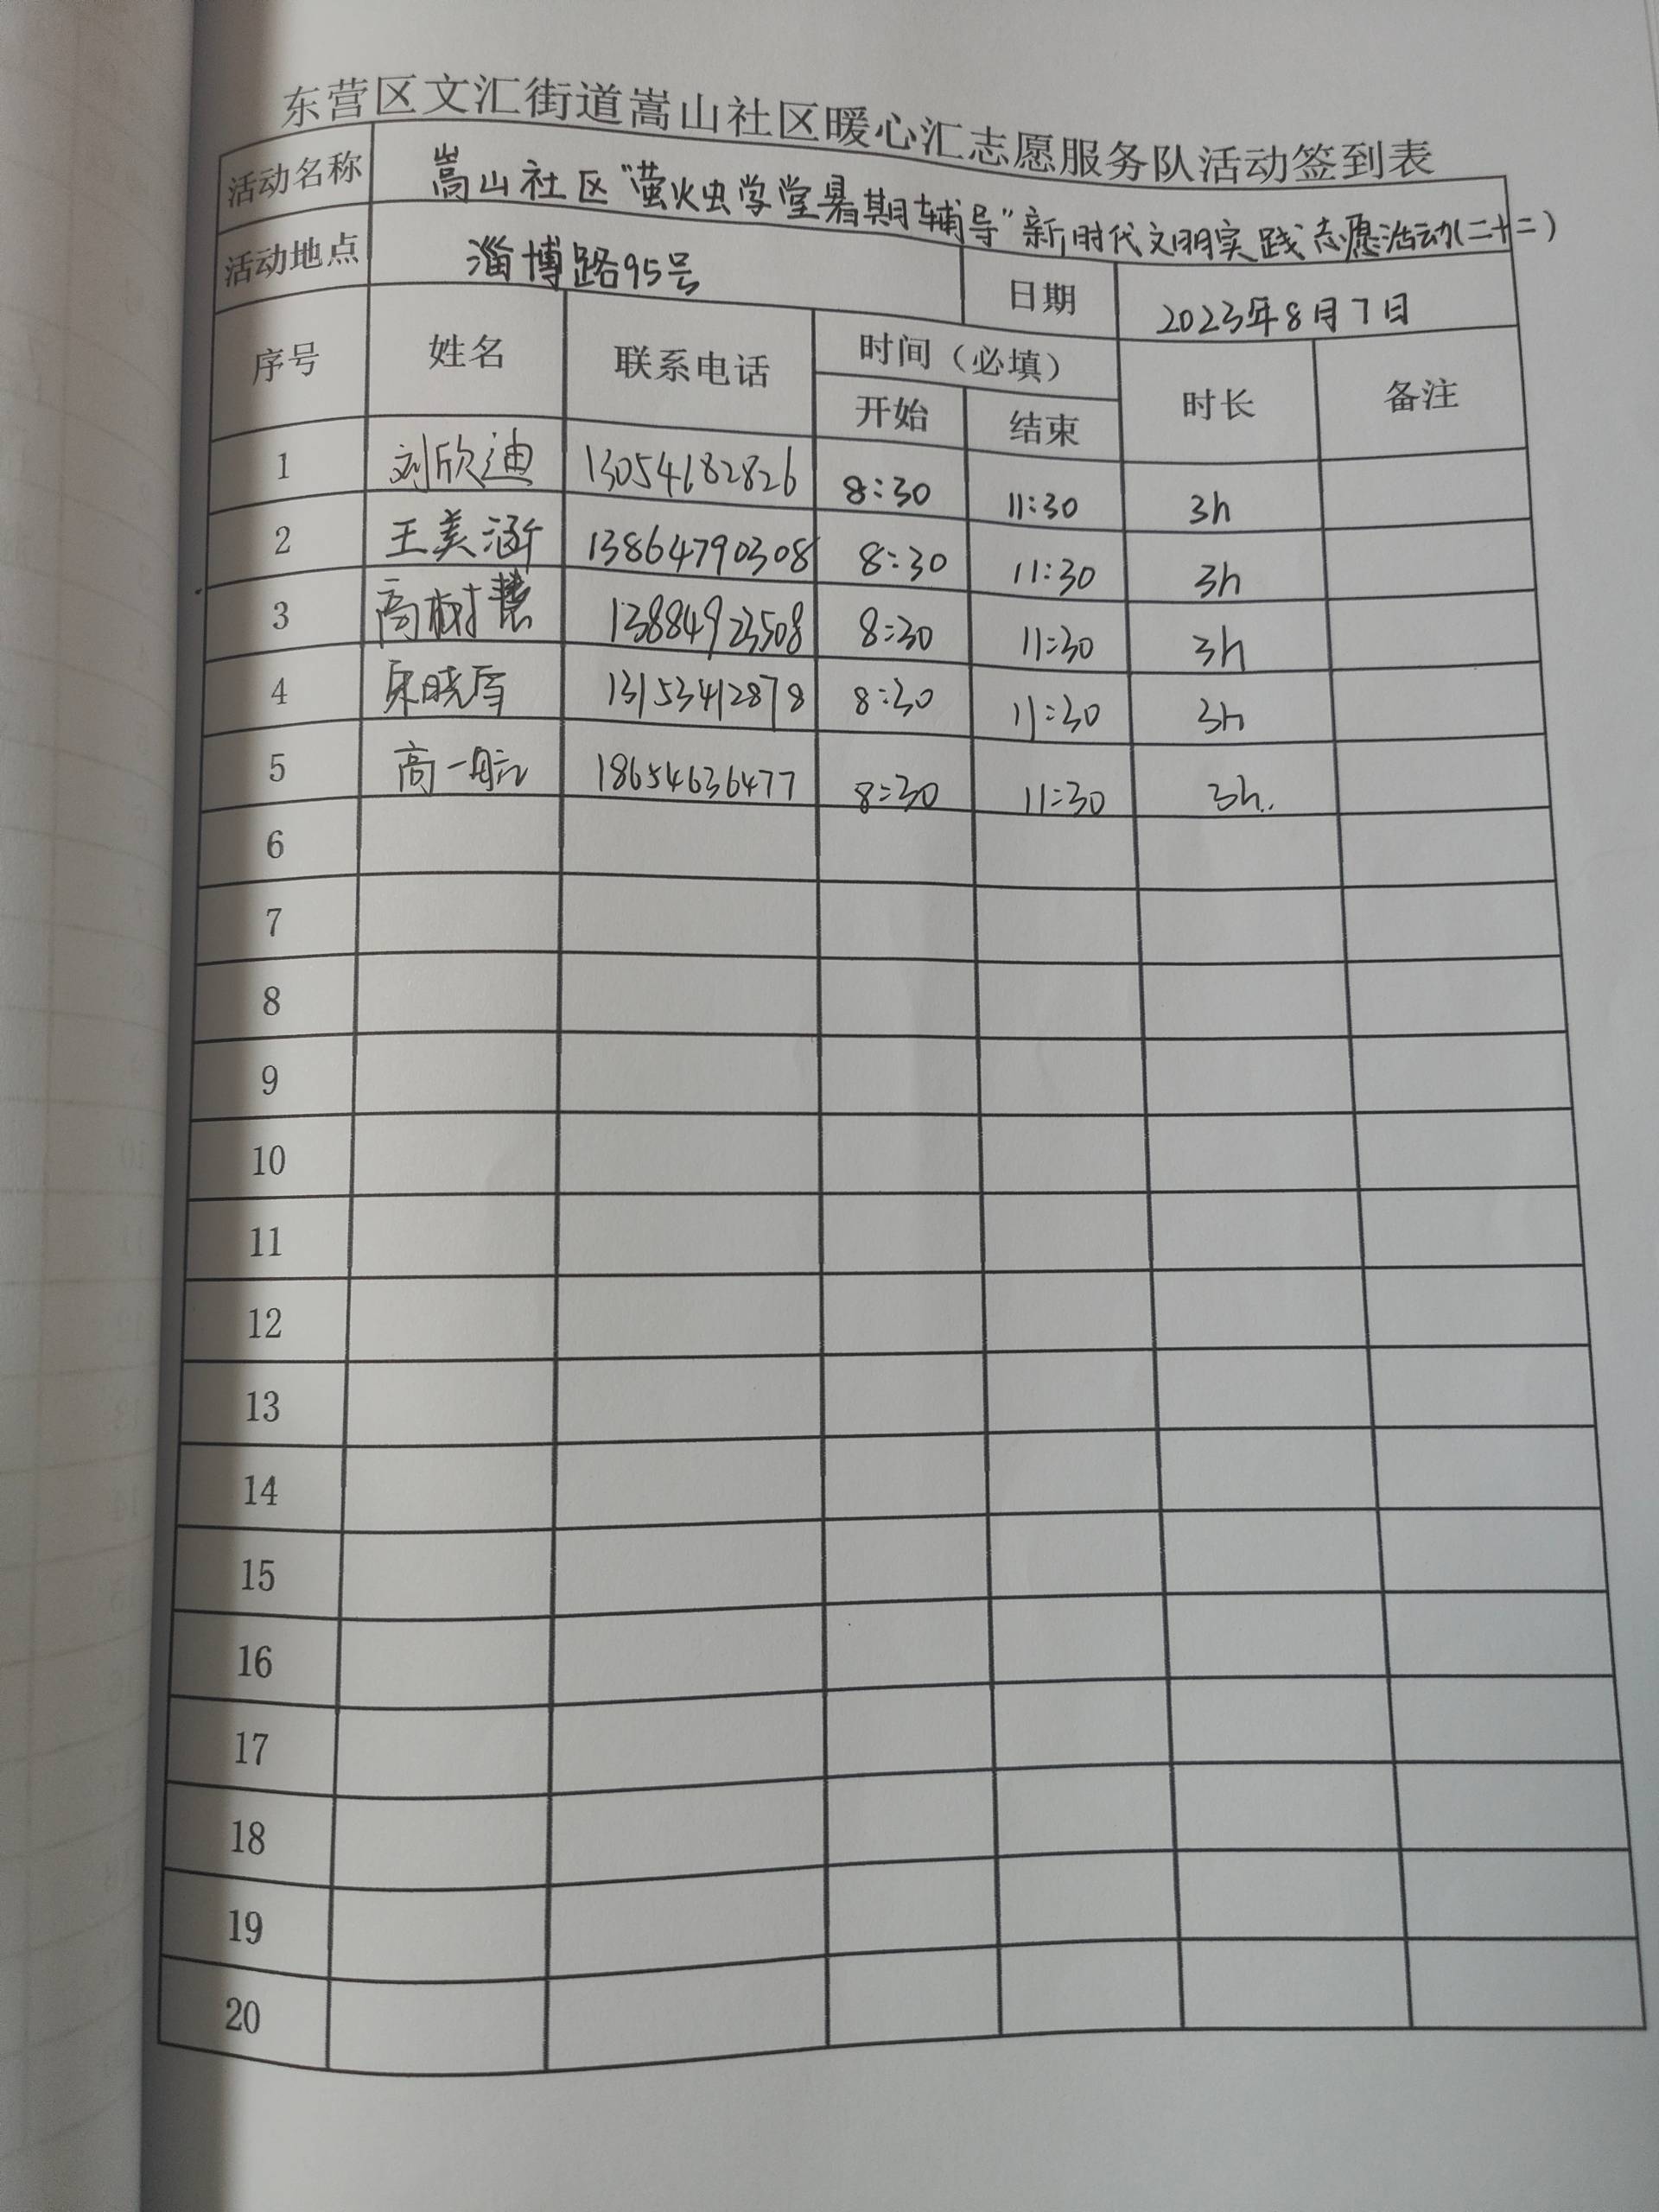 东营区文汇街道嵩山社区暖心汇志愿服务队活动签到表
活动名称 嵩山社区“萤火虫学堂暑期辅导”新时代文明实践志愿活动(二十二)
活动地点 淄博路95号 日期 2023年8月7日
序号 姓名 联系电话 时间（必填） 时长 备注
开始 结束
1 刘欣迪 13054682826 8:30 11:30 3h
2 王美涵 13864790308 8:30 11:30 3h
3 高树慧 13884923508 8:30 11:30 3h
4 宋晓雪 13153412878 8:30 11:30 3h
5 高一航 18654636477 8:30 11:30 3h
6
7
8
9
10
11
12
13
14
15
16
17
18
19
20